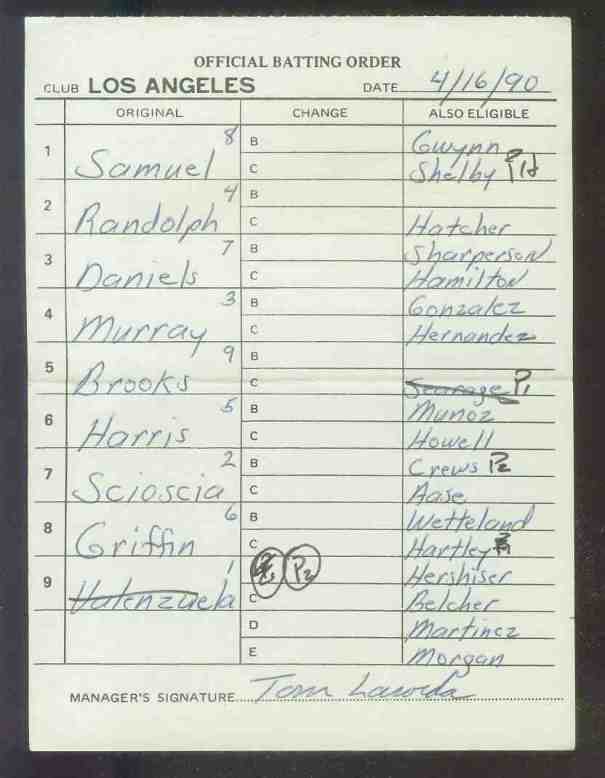 OFFICIAL BATTING ORDER
CLUB LOS ANGELES DATE 4/16/90
ORIGINAL CHANGE ALSO ELIGIBLE
1 Samuel 8 B Gwynn
C Shelby
2 Randolph 4 B
C Hatcher
3 Daniels 7 B Sharperson
C Hamilton
4 Murray 3 B Gonzalez
C Hernandez
5 Brooks 9 B
C Searage P1
6 Harris 5 B Munoz
C Howell
7 Scioscia 2 B Crews P2
C Aase
8 Griffin 6 B Wetteland
C Hartley
9 Valenzuela 1 P2 Hershiser
C Belcher
D Martinez
E Morgan
MANAGER'S SIGNATURE Tom Lasorda